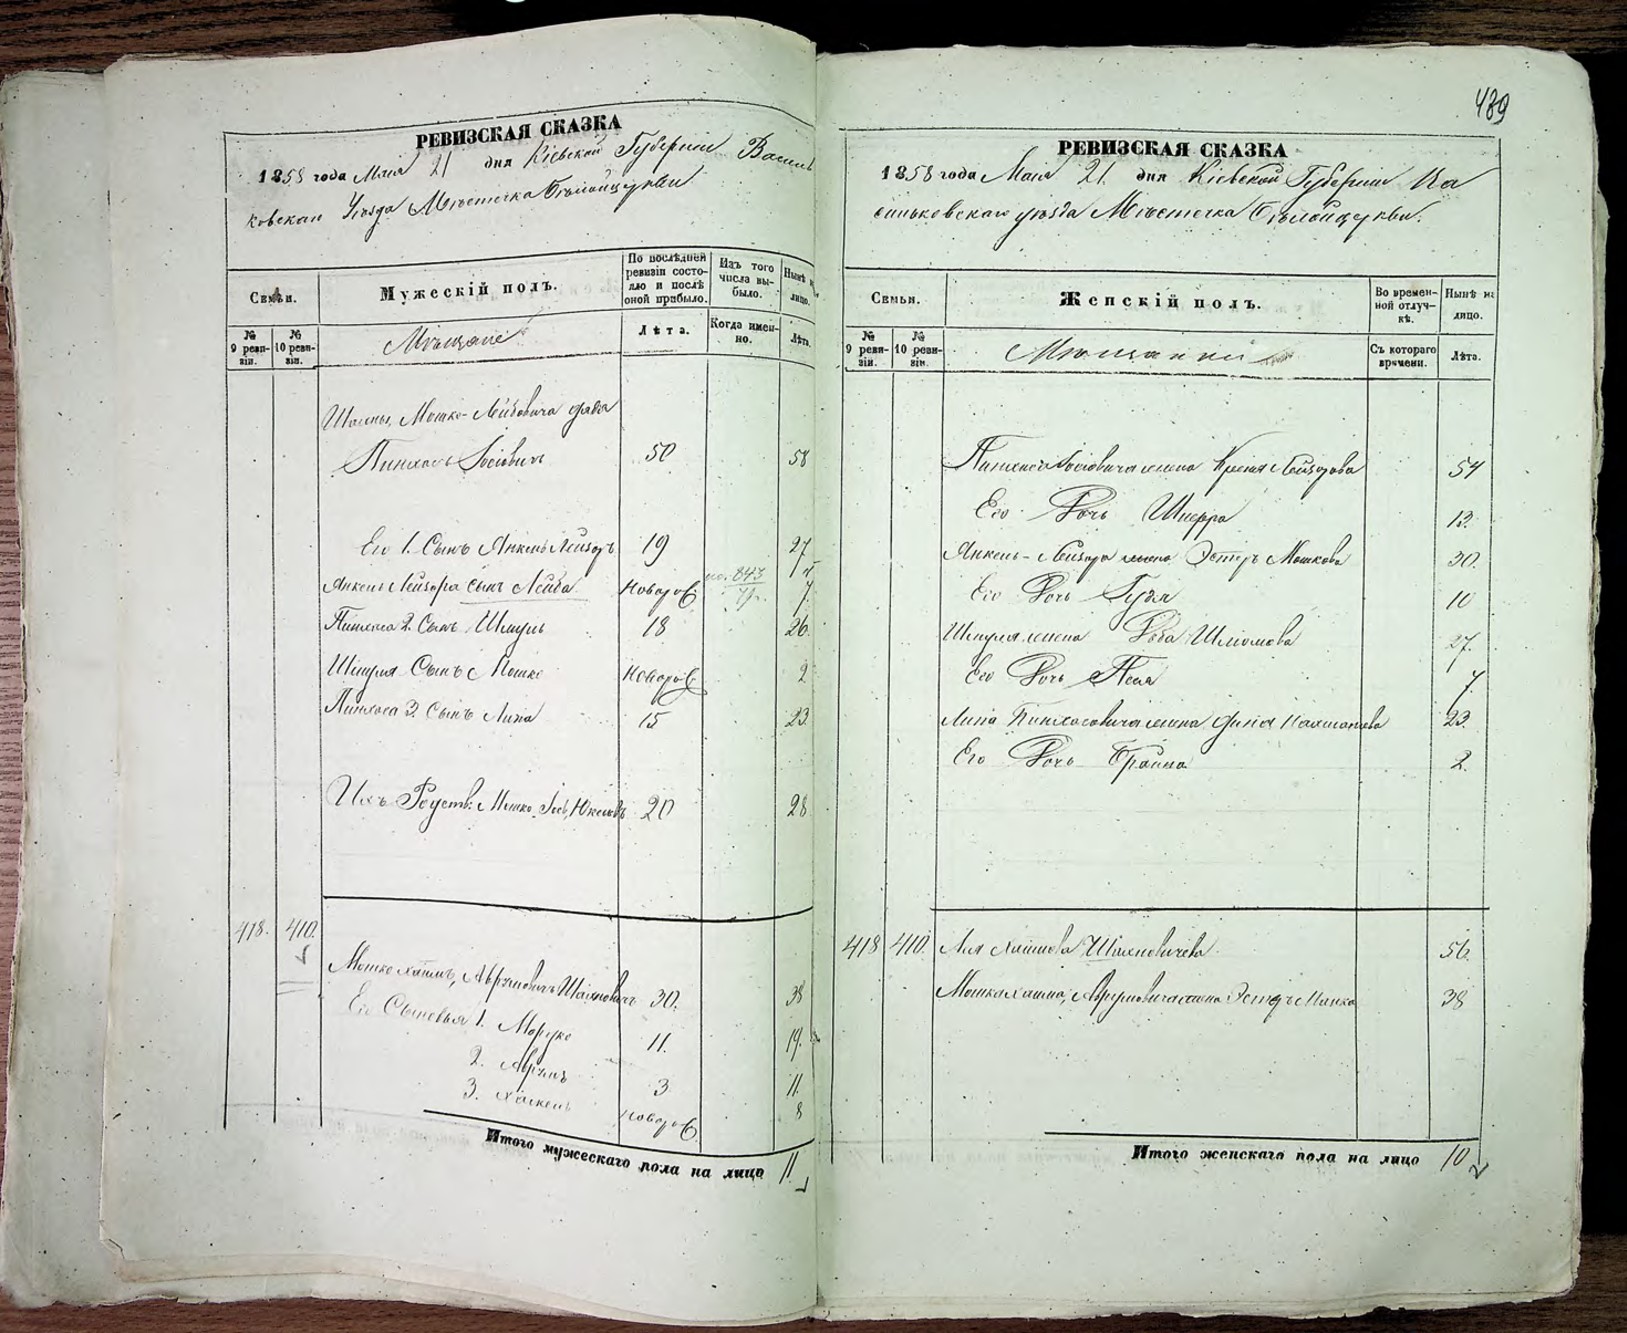 489
РЕВИЗСКАЯ СКАЗКА
1858 года Маія 21 дня Кіевской Губерніи Василь
ковскаго Уѣзда Мѣстечка Бѣлойцеркви
Семьи.
Мужескій полъ.
По послѣдней ревизіи состояло и послѣ оной прибыло.
Изъ того числа выбыло.
Нынѣ на лицо.
№ 9 ревизіи.
№ 10 ревизіи.
Мѣщане
Лѣта.
Когда именно.
Лѣта.
Мошко-Лейбовича дядя
Пинхасъ Іосіовичъ 50 58
Его 1. Сынъ Янкель Лейзоръ 19 27
Янкель Лейзора сынъ Лейба новорож 843 7
Пинхаса 2. Сынъ Шмуль 18 26
Шмуля Сынъ Мошко новорож 2
Пинхаса 3. Сынъ Липа 15 23
Ихъ Родств: Мошко 20 28
418. 410.
Мошко Хаимъ, Аврумовичъ Шахновичъ 30. 38
Его Сыновья 1. Мордко 11. 19.
2. Аврумъ 3 11
3. Хаскель новорож 8
Итого мужескаго пола на лицо 11
РЕВИЗСКАЯ СКАЗКА
1858 года Маія 21. дня Кіевской Губерніи Ва
сильковскаго уѣзда Мѣстечка Бѣлойцеркви.
Семьи.
Женскій полъ.
Во временной отлучкѣ.
Нынѣ на лицо.
№ 9 ревизіи.
№ 10 ревизіи.
Мѣщанки
Съ котораго времени.
Лѣта.
Пинхаса Іосіовича жена Лейзорова 54
Его Дочь Шпера 13.
Янкель-Лейзора жена Эстеръ Мошкова 30.
Его Дочь Гудя 10
Шмуля жена Шлiомова 27.
Его Дочь Песя 7.
Липа Пинхасовича жена Нахманова 23.
Его Дочь Брайна 2.
418 410. Лея Хаимова Шахновичева 56.
Мошка Хаима, Аврумовича жена Эстеръ 38
Итого женскаго пола на лицо 10